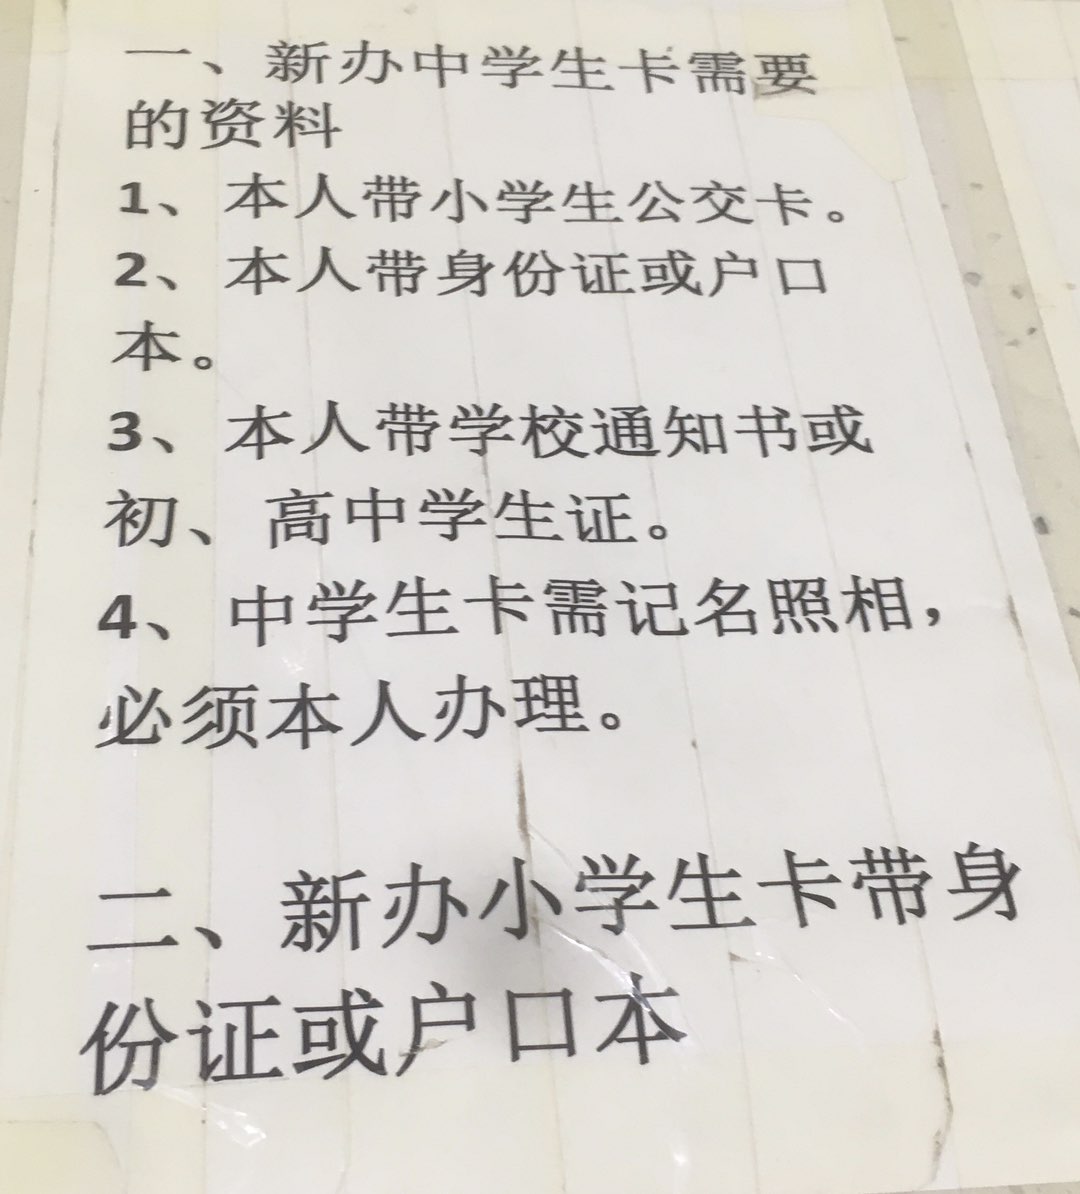 一、新办中学生卡需要
的资料
1、本人带小学生公交卡。
2、本人带身份证或户口
本。
3、本人带学校通知书或
初、高中学生证。
4、中学生卡需记名照相，
必须本人办理。
二、新办小学生卡带身
份证或户口本